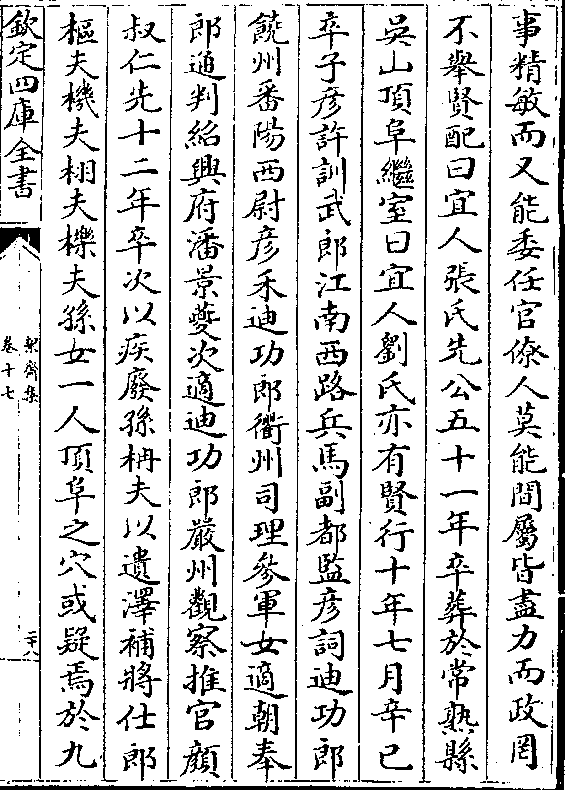 事精敏而又能委任官僚人莫能間屬皆盡力而政罔
不舉賢配曰宜人張氏先公五十一年卒葬於常熟縣
吳山頂阜繼室曰宜人劉氏亦有賢行十年七月辛巳
卒子彦許訓武郎江南西路兵馬副都監彦詞迪功郎
饒州番陽西尉彦禾迪功郎衢州司理參軍女適朝奉
郎通判紹興府潘景夔次適迪功郎嚴州觀察推官顔
叔仁先十二年卒次以疾廢孫枏夫以遺澤補將仕郎
樞夫機夫栩夫櫟夫孫女一人頂阜之穴或疑焉於九
欽定四庫全書
絜齋集
卷十七
二十八